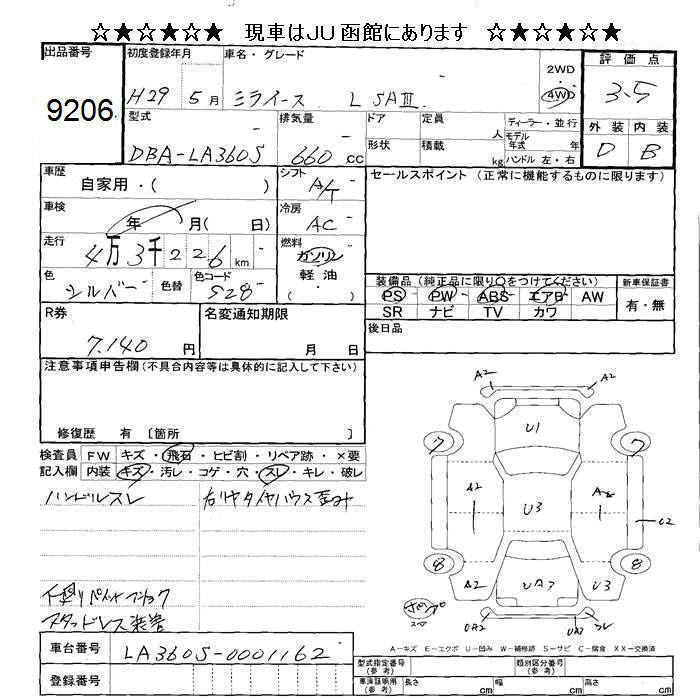 ☆★☆★☆ 現車はJU函館にあります ☆★☆★☆
出品番号
9206
初度登録年月
H29 5月
車名・グレード
ミライース L SAⅢ
2WD
4WD
評価点
3.5
型式
DBA-LA360S
排気量
660 CC
ドア
定員
人
形状
積載
kg
ディーラー・並行
モデル年式 年
ハンドル 左・右
外装 内装
D B
車歴
自家用・( )
シフト
A/T
車検
年 月( 日)
冷房
AC
走行
4万3千226km
燃料
ガソリン
軽油
( )
色
シルバー
色替
色コード
S28
セールスポイント (正常に機能するものに限ります)
装備品(純正品に限り○をつけてください)
PS PW ABS エアB AW
SR ナビ TV カワ
新車保証書
有・無
後日品
R券
7,140円
名変通知期限
月 日
注意事項申告欄(不具合内容等は具体的に記入して下さい)
修復歴 有 〔箇所 〕
検査員記入欄
FW キズ・飛石・ヒビ割・リペア跡・×要
内装 キズ・汚レ・コゲ・穴・スレ・キレ・破レ
ハンドルスレ
スタッドレス装着
A2 A2
U1
7 7
A2 U3 A2
U2
8 8
A2 UA3 U3
UA2
A-キズ E-エクボ U-凹み W-補修跡 S-サビ C-腐食 XX-交換済
車台番号
LA360S-0001162
登録番号
型式指定番号(参考)
類別区分番号(参考)
車庫証明用(参考) 長さ cm 幅 cm 高さ cm